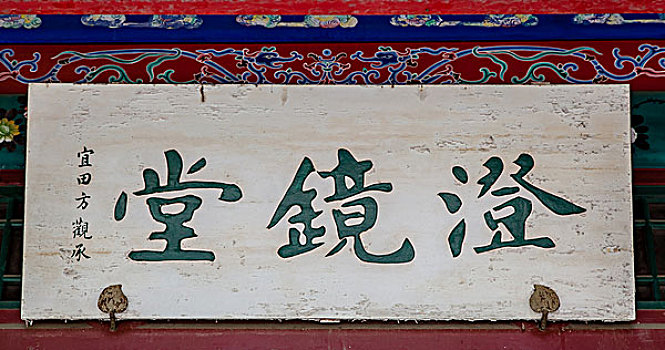 澄鏡堂
宜田方觀承